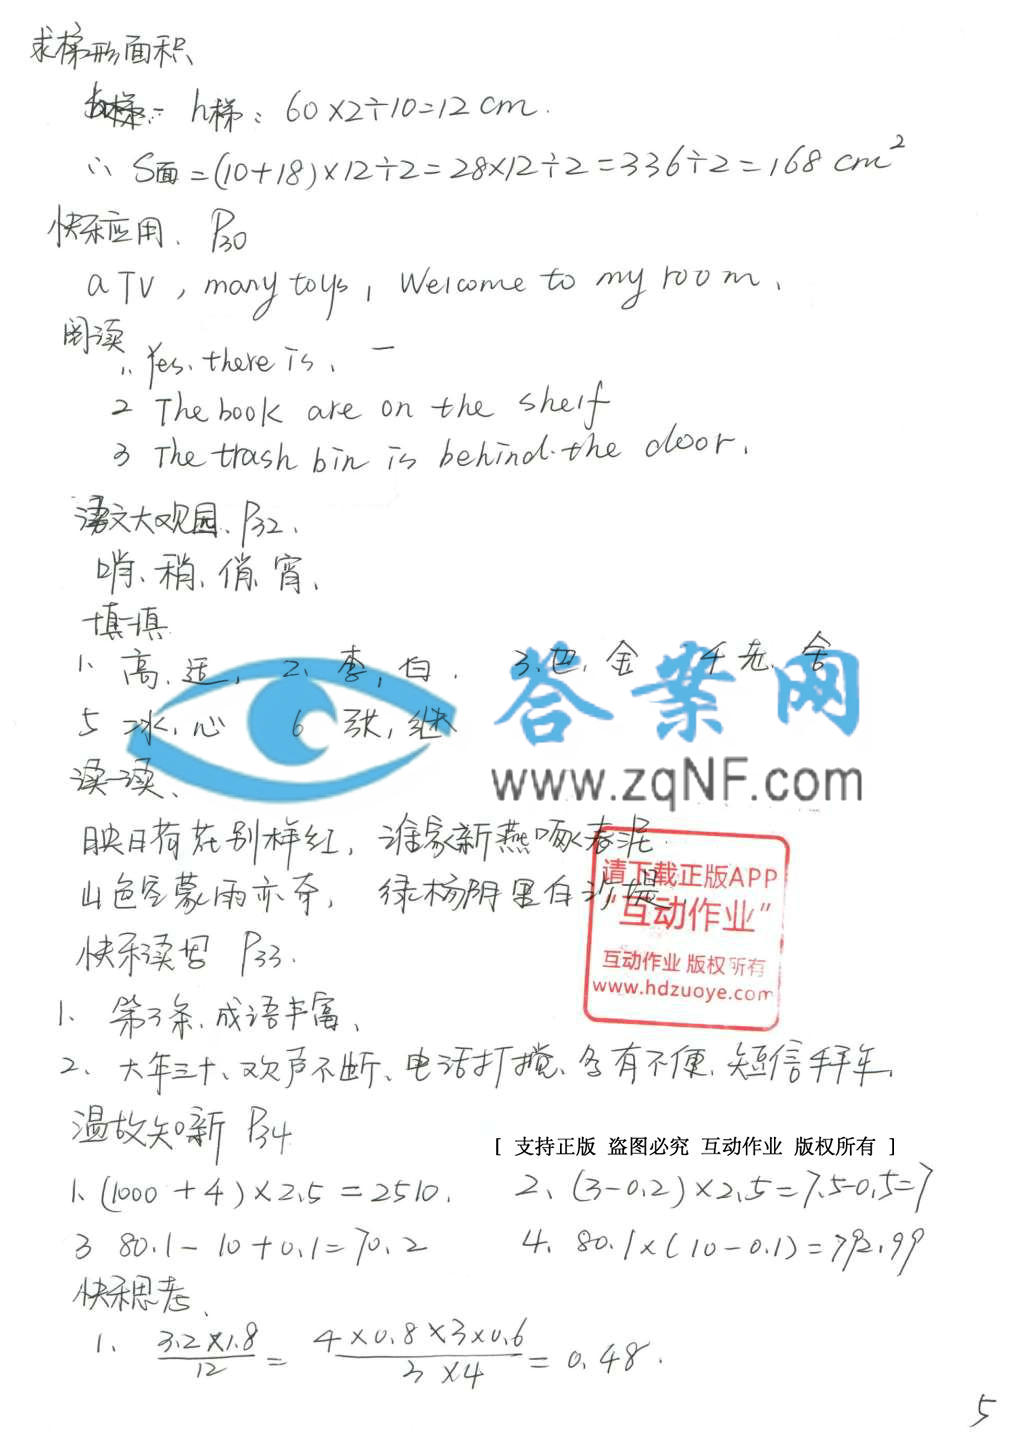 求梯形面积
h梯: 60×2÷10=12cm.
∴ S面=(10+18)×12÷2=28×12÷2=336÷2=168cm²
快乐应用. P30
a TV, many toys, Welcome to my room.
阅读
1. Yes. there is.
2 The book are on the shelf
3 The trash bin is behind the door.
语文大观园. P32.
哨、稍、俏、宵.
填一填
1、高、适, 2、李, 白. 3. 巴, 金 4 老. 舍
5 冰, 心 6 张, 继
答案网
www.zqNF.com
读一读、
映日荷花别样红, 谁家新燕啄春泥.
山色空蒙雨亦奇, 绿杨阴里白沙堤
请下载正版APP
“互动作业”
互动作业 版权所有
www.hdzuoye.com
快乐读书 P33.
1、第3条. 成语丰富、
2、大年三十、欢声不断、电话打搅、多有不便. 短信拜年.
温故知新 P34
[ 支持正版 盗图必究 互动作业 版权所有 ]
1、(1000+4)×2.5=2510. 2、(3-0.2)×2.5=7.5-0.5=7
3 80.1-10+0.1=70.2 4. 80.1×(10-0.1)=792.99
快乐思考、
1、3.2×1.8/12 = 4×0.8×3×0.6/3×4 = 0.48.
5